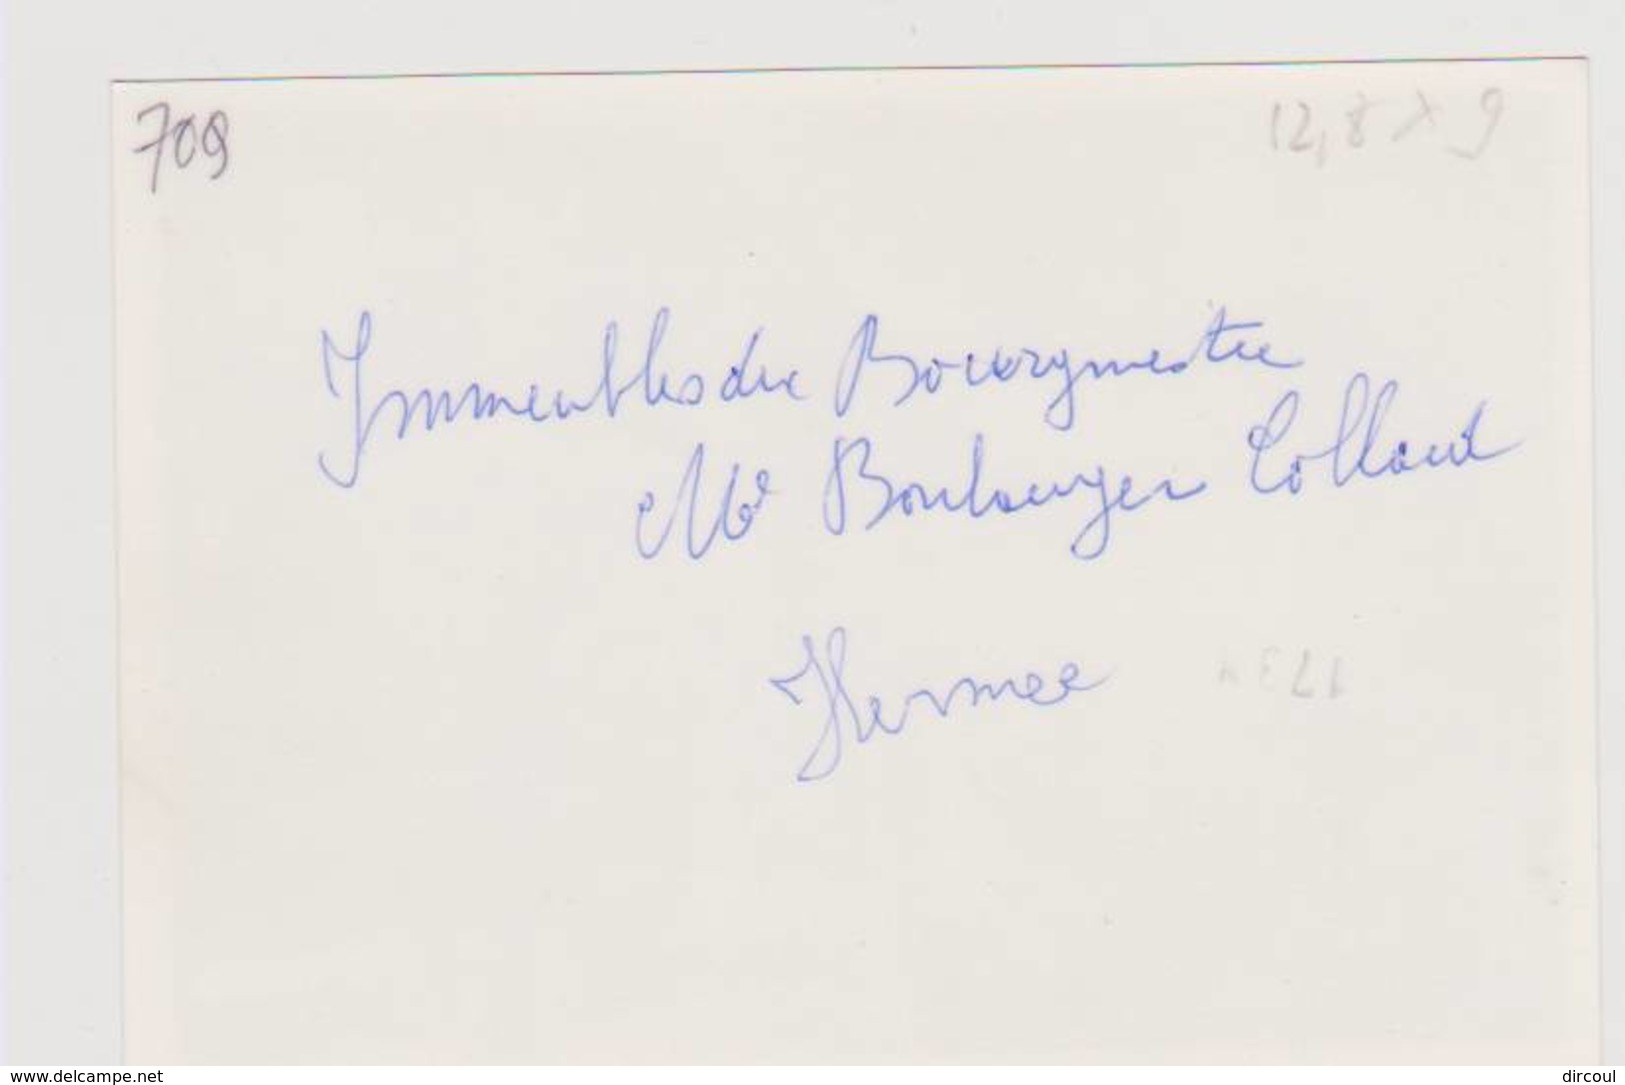 709
12,8 x 9
Immeubles du Bourgmestre
Mr Boulanger Collard
Hermee
www.delcampe.net
dircoul